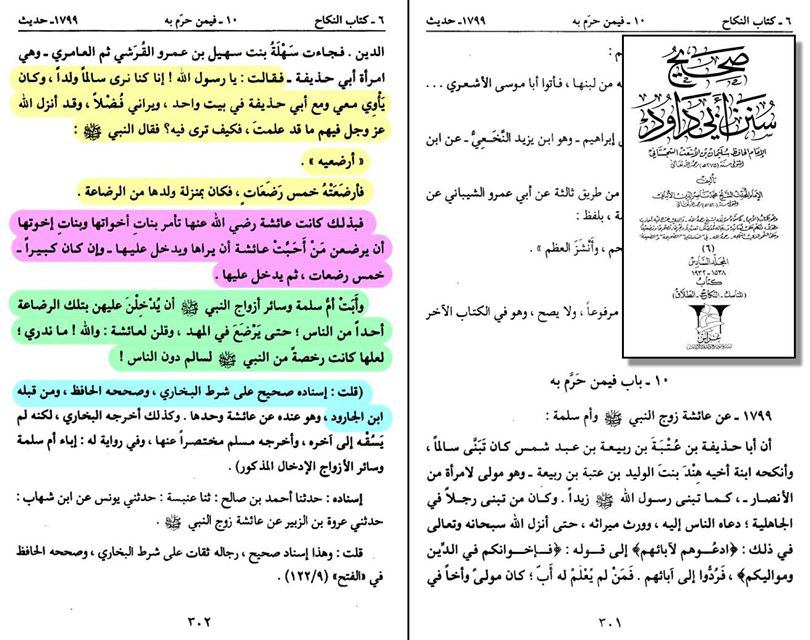 ٦ ـ كتاب النكاح
١٠ ـ فيمن حرّم به
١٧٩٩ـ حديث
م :
ه من لبنها ، فأتوا أبا موسى الأشعري ...
إبراهيم ـ وهو ابن يزيد النَّخَعِيُّ ـ عن ابن
من طريق ثالثة عن أبي عمرو الشيباني عن
ة ، بلفظ :
حم ، وأَنْشَزَ العظم » .
مرفوعاً ، ولا يصح ، وهو في الكتاب الآخر
صحيح
سنن أبي داود
للإمام الحافظ سليمان بن الأشعث السجستاني
تأليف
(٦)
المجلد السادس
١٥٣٨ - ١٩٣٢
كتاب
(المناسك ـ النكاح ـ الطلاق)
غراس
١٠ ـ باب فيمن حَرَّم به
١٧٩٩ ـ عن عائشة زوج النبي ﷺ وأم سلمة :
أن أبا حذيفة بن عُتْبَةَ بن ربيعة بن عبد شمس كان تَبَنَّى سالماً ،
وأنكحه ابنة أخيه هِنْدَ بنتَ الوليد بن عتبة بن ربيعة ـ وهو مولى لامرأة من
الأنصار ـ ، كـما تبنى رسول الله ﷺ زيداً . وكان من تبنى رجلاً في
الجاهلية ؛ دعاه الناس إليه ، وورث ميراثه ، حتى أنزل الله سبحانه وتعالى
في ذلك : ﴿ادعُوهم لآبائهم﴾ إلى قوله : ﴿فـإخـوانكم في الدِّين
ومواليكم﴾ ، فَرُدُّوا إلى آبائهم . فَمَنْ لم يُعْلَمْ له أَبٌ؛ كان مولىً وأخاً في
٣٠١
٦ ـ كتاب النكاح
١٠ ـ فيمن حرّم به
١٧٩٩ـ حديث
الدين . فـجاءت سَهْلَةُ بنت سهيل بن عمرو القُرَشي ثم العامري ـ وهي
امرأة أبي حذيفة ـ فقالت : يا رسول الله ! إنا كنا نرى سالماً ولداً ، وكان
يَأْوِي معي ومع أبي حذيفة في بيت واحد ، ويراني فُضُلاً ، وقد أنزل الله
عز وجل فيهم ما قد علمتَ ، فكيف ترى فيه؟ فقال النبي ﷺ :
« أرضعيه » .
فأرضَعَتْهُ خمس رَضَعَاتٍ ، فكان بمنزلة ولدها من الرضاعة .
فبذلك كانت عائشة رضي الله عنها تأمر بناتِ أخواتها وبناتِ إخوتها
أن يرضعن مَنْ أَحَبَّتْ عائشة أن يراها ويدخل عليهـا ـ وإن كان كبيراً ـ
خمس رضعات ، ثم يدخل عليها .
وأَبَتْ أمُّ سلمة وسائر أزواج النبي ﷺ أن يُدْخِلْنَ عليهن بتلك الرضاعة
أحداً من الناس ؛ حتى يَرْضَعَ في المهد ، وقلن لعائشة : والله ! ما ندري ؛
لعلها كانت رخصةً من النبي ﷺ لسالم دون الناس !
(قلت : إسناده صحيح على شرط البخاري ، وصححه الحافظ ، ومن قبله
ابن الجارود ، وهو عنده عن عائشة وحدها . وكذلك أخرجه البخاري ، لكنه لم
يَسُقْه إلى آخره ، وأخرجه مسلم مختصراً عنها ، وفي رواية له : إباء أم سلمة
وسائر الأزواج الإدخال المذكور) .
إسناده : حدثنا أحمد بن صالح : ثنا عنبسة : حدثني يونس عن ابن شهاب :
حدثني عروة بن الزبير عن عائشة زوج النبي ﷺ .
قلت : وهذا إسناد صحيح ، رجاله ثقات على شرط البخاري ، وصححه الحافظ
في «الفتح» (١٢٢/٩) .
٣٠٢